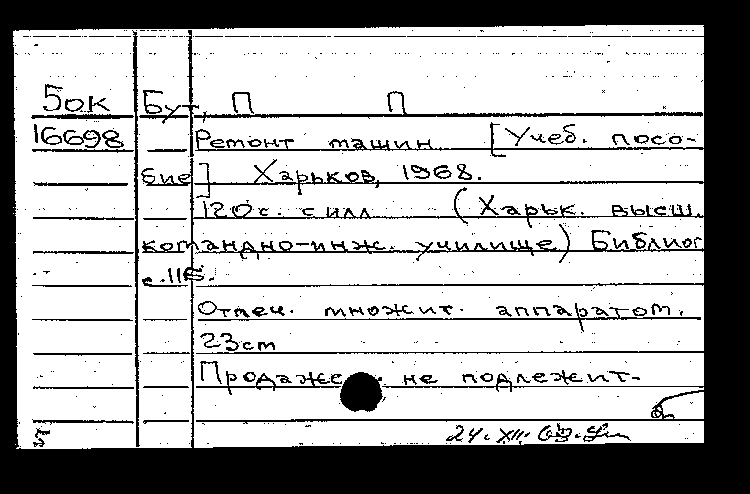 5ок Бут, П П
16698 Ремонт машин [Учеб. посо-
бие] Харьков, 1968.
120с. с илл (Харьк. высш.
командно-инж. училище) Библиог
с.116.
Отпеч. множит. аппаратом.
23cm
Продаже не подлежит.
24.XII.69.